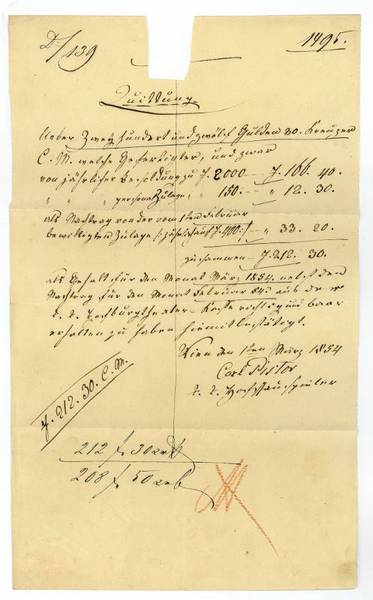 D/139
1495.
Quittung
Ueber Zwey hundert und zwölf Gulden 30. Kreuzer
C. M. welche Gefertigter, und zwar
von jährlicher Besoldung zu f. 2000 — f. 166. 40.
" " personalzulage " 150. — " 12. 30.
als Nachtrag von der vom 1ten Februar
bewilligten Zulage / jährlich auf f. 400. / — " 33. 20.
zusammen — f. 212. 30.
als Gehalt für den Monat März 1854. nebst dem
Nachtrag für den Monat Februar aus der
k. k. Hofburgtheater-Kasse richtig und baar
erhalten zu haben hiemit bestätigt.
Wien den 1ten März 1854
Carl
k. k. Hofschauspieler
f. 212. 30. C. M.
212 f 30
208 f 50